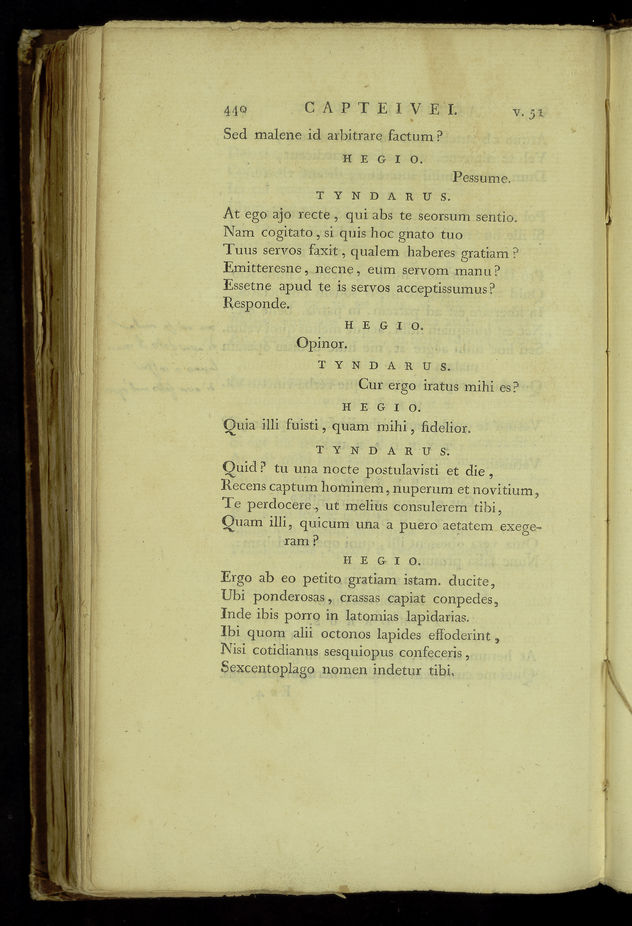 440 CAPTEIVEI. V. 51
Sed malene id arbitrare factum?
HEGIO.
Pessume.
TYNDARUS.
At ego ajo recte, qui abs te seorsum sentio.
Nam cogitato, si quis hoc gnato tuo
Tuus servos faxit, qualem haberes gratiam?
Emitteresne, necne, eum servom manu?
Essetne apud te is servos acceptissumus?
Responde.
HEGIO.
Opinor.
TYNDARUS.
Cur ergo iratus mihi es?
HEGIO.
Quia illi fuisti, quam mihi, fidelior.
TYNDARUS.
Quid? tu una nocte postulavisti et die,
Recens captum hominem, nuperum et novitium,
Te perdocere, ut melius consulerem tibi,
Quam illi, quicum una a puero aetatem exege-
ram?
HEGIO.
Ergo ab eo petito gratiam istam. ducite,
Ubi ponderosas, crassas capiat conpedes,
Inde ibis porro in latomias lapidarias.
Ibi quom alii octonos lapides effoderint,
Nisi cotidianus sesquiopus confeceris,
Sexcentoplago nomen indetur tibi.